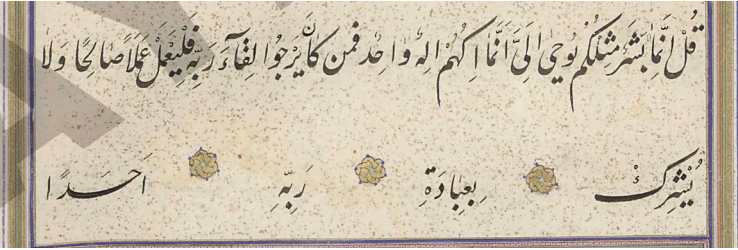 قُل اِنَّمَا بَشَرٌ مثلُكُم يُوحىٰ اِلَیَّ اَنَّمَا اِلٰهُكُمْ اِلٰهٌ وٰاحِدٌ فمن كَانَ يَرْجُوا لِقَآءَ رَبِّهِ فَلْيَعْمَلْ عَمَلًا صٰالِحًا وَلا
يُشْرِكْ بِعِبٰادَةِ رَبِّهِ اَحَدًا